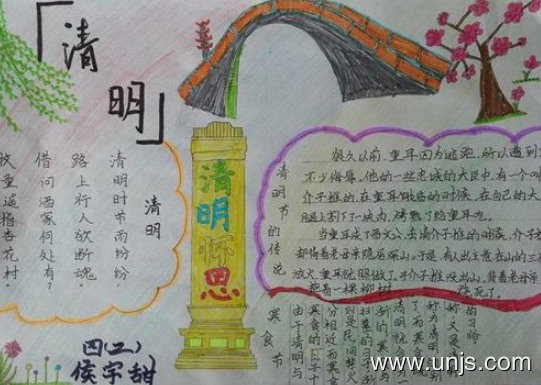 「清明」
清明
清明时节雨纷纷
路上行人欲断魂。
借问酒家何处有?
牧童遥指杏花村。
清明怀思
四(二)
侯宇甜
清明节的传说
很久以前,重耳因为逃跑,所以遭到
不少侮辱。他的一些忠诚的大臣中,有一个叫
介子推的,在重耳饿晕的时候,在自己的大
腿上割了一块肉,烤熟了给重耳吃。
当重耳成了晋文公,去请介子推的时候,介子推
却背着老母亲隐居深山。于是,有人出主意在山的三
放火,重耳就照做了。可介子推没出山,背着老母亲
抱着一棵柳树烧死了。
寒食节
由于清明与
寒食的日子十
分相近,而寒食
则是民间禁火
扫墓的
www.unjs.com